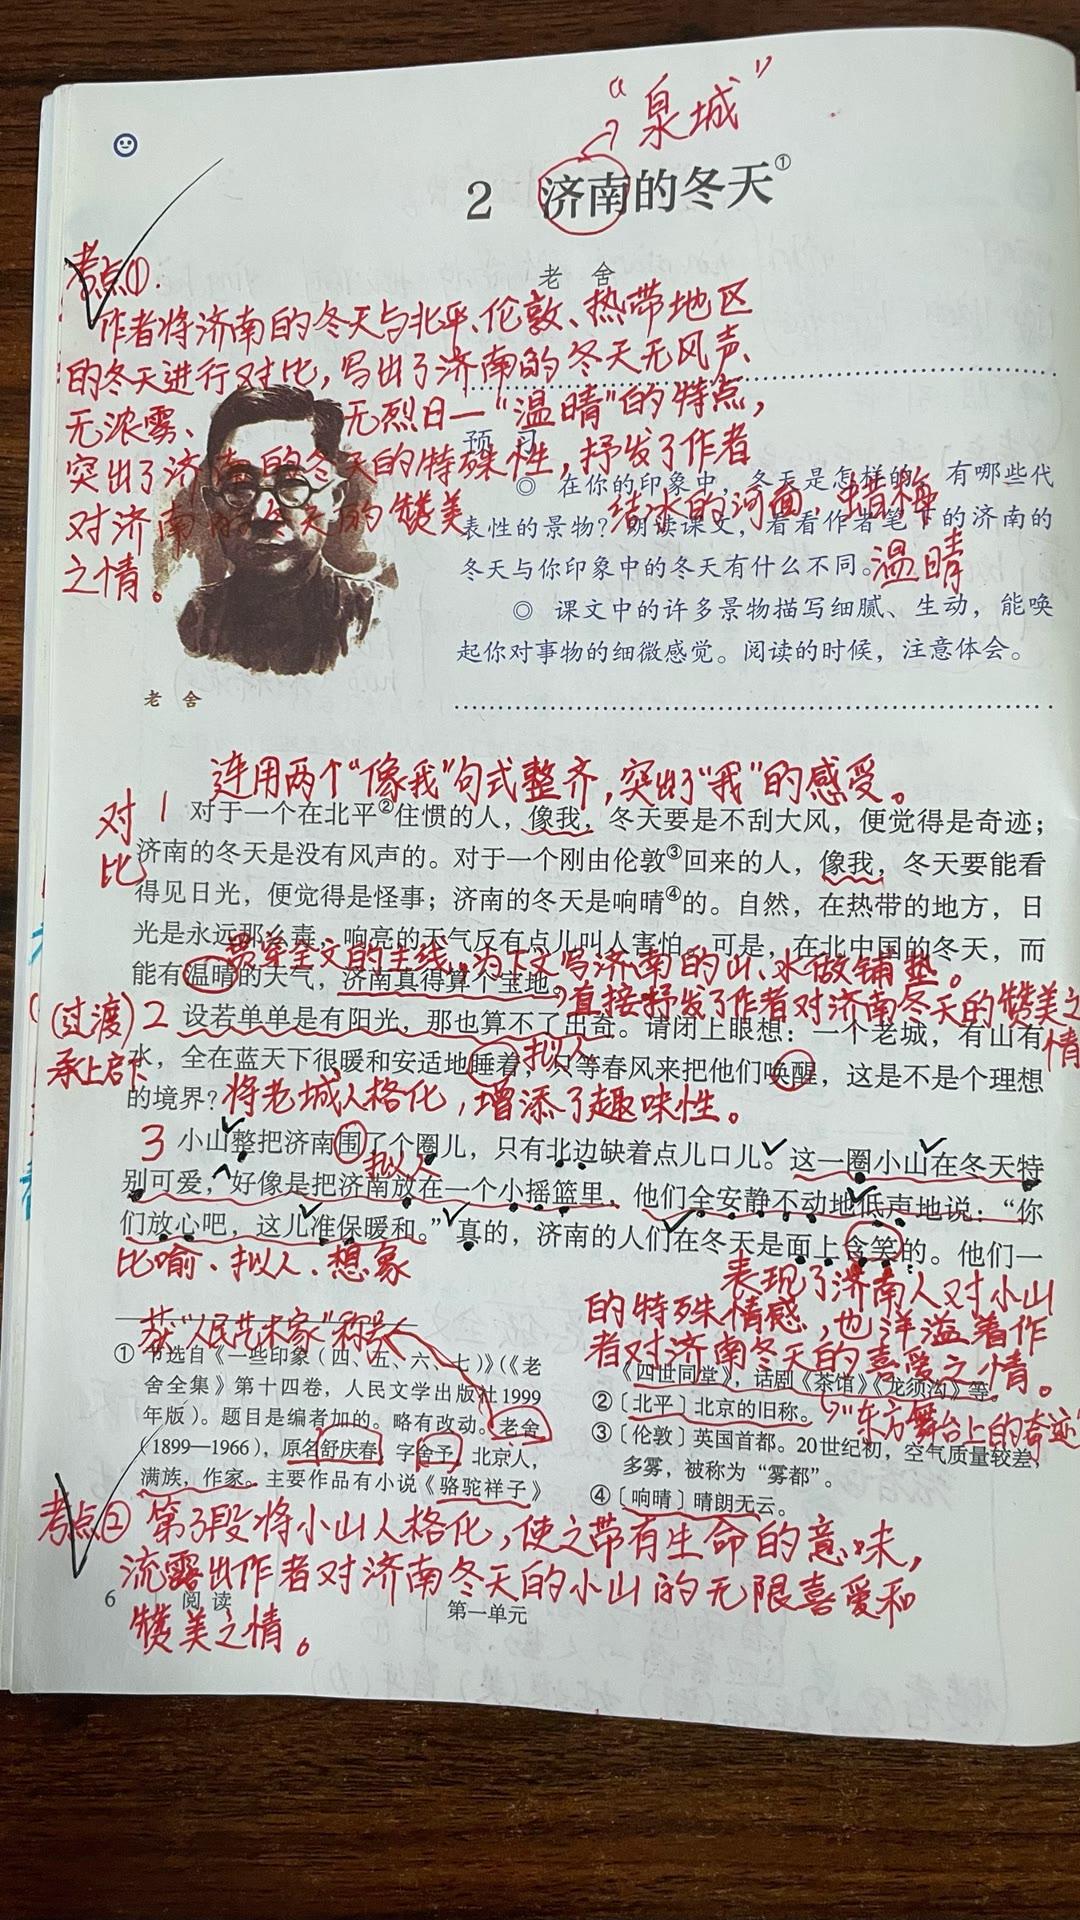 “泉城”
2 济南的冬天①
老 舍
考点①.
作者将济南的冬天与北平、伦敦、热带地区
的冬天进行对比，写出了济南的冬天无风声、
无浓雾、无烈日—“温晴”的特点，
突出了济南的冬天的特殊性，抒发了作者
对济南的冬天的赞美
之情。
预 习
◎ 在你的印象中，冬天是怎样的？有哪些代
结冰的河面，蜡梅
表性的景物？朗读课文，看看作者笔下的济南的
冬天与你印象中的冬天有什么不同。温晴
◎ 课文中的许多景物描写细腻、生动，能唤
起你对事物的细微感觉。阅读的时候，注意体会。
老 舍
连用两个“像我”句式整齐，突出了“我”的感受。
对比
1 对于一个在北平②住惯的人，像我，冬天要是不刮大风，便觉得是奇迹；
济南的冬天是没有风声的。对于一个刚由伦敦③回来的人，像我，冬天要能看
得见日光，便觉得是怪事；济南的冬天是响晴④的。自然，在热带的地方，日
光是永远那么毒，响亮的天气反有点儿叫人害怕。可是，在北中国的冬天，而
贯穿全文的主线，为下文写济南的山、水做铺垫。
能有温晴的天气，济南真得算个宝地。
直接抒发了作者对济南冬天的赞美之情
(过渡)
承上启下
2 设若单单是有阳光，那也算不了出奇。请闭上眼想：一个老城，有山有
水，全在蓝天下很暖和安适地睡着，只等春风来把他们唤醒，这是不是个理想
拟人
的境界？
将老城人格化，增添了趣味性。
3 小山整把济南围了个圈儿，只有北边缺着点儿口儿。这一圈小山在冬天特
拟人
别可爱，好像是把济南放在一个小摇篮里，他们全安静不动地低声地说：“你
们放心吧，这儿准保暖和。”真的，济南的人们在冬天是面上含笑的。他们一
比喻、拟人、想象
表现了济南人对小山
的特殊情感，也洋溢着作
者对济南冬天的喜爱之情。
获“人民艺术家”称号
① 节选自《一些印象（四、五、六、七）》（《老
舍全集》第十四卷，人民文学出版社1999
年版）。题目是编者加的。略有改动。老舍
（1899—1966），原名舒庆春，字舍予，北京人，
满族，作家。主要作品有小说《骆驼祥子》
《四世同堂》，话剧《茶馆》《龙须沟》等。
“东方舞台上的奇迹
② 〔北平〕北京的旧称。
③ 〔伦敦〕英国首都。20世纪初，空气质量较差，
多雾，被称为“雾都”。
④ 〔响晴〕晴朗无云。
考点② 第3段将小山人格化，使之带有生命的意味，
流露出作者对济南冬天的小山的无限喜爱和
赞美之情。
6 阅 读
第一单元